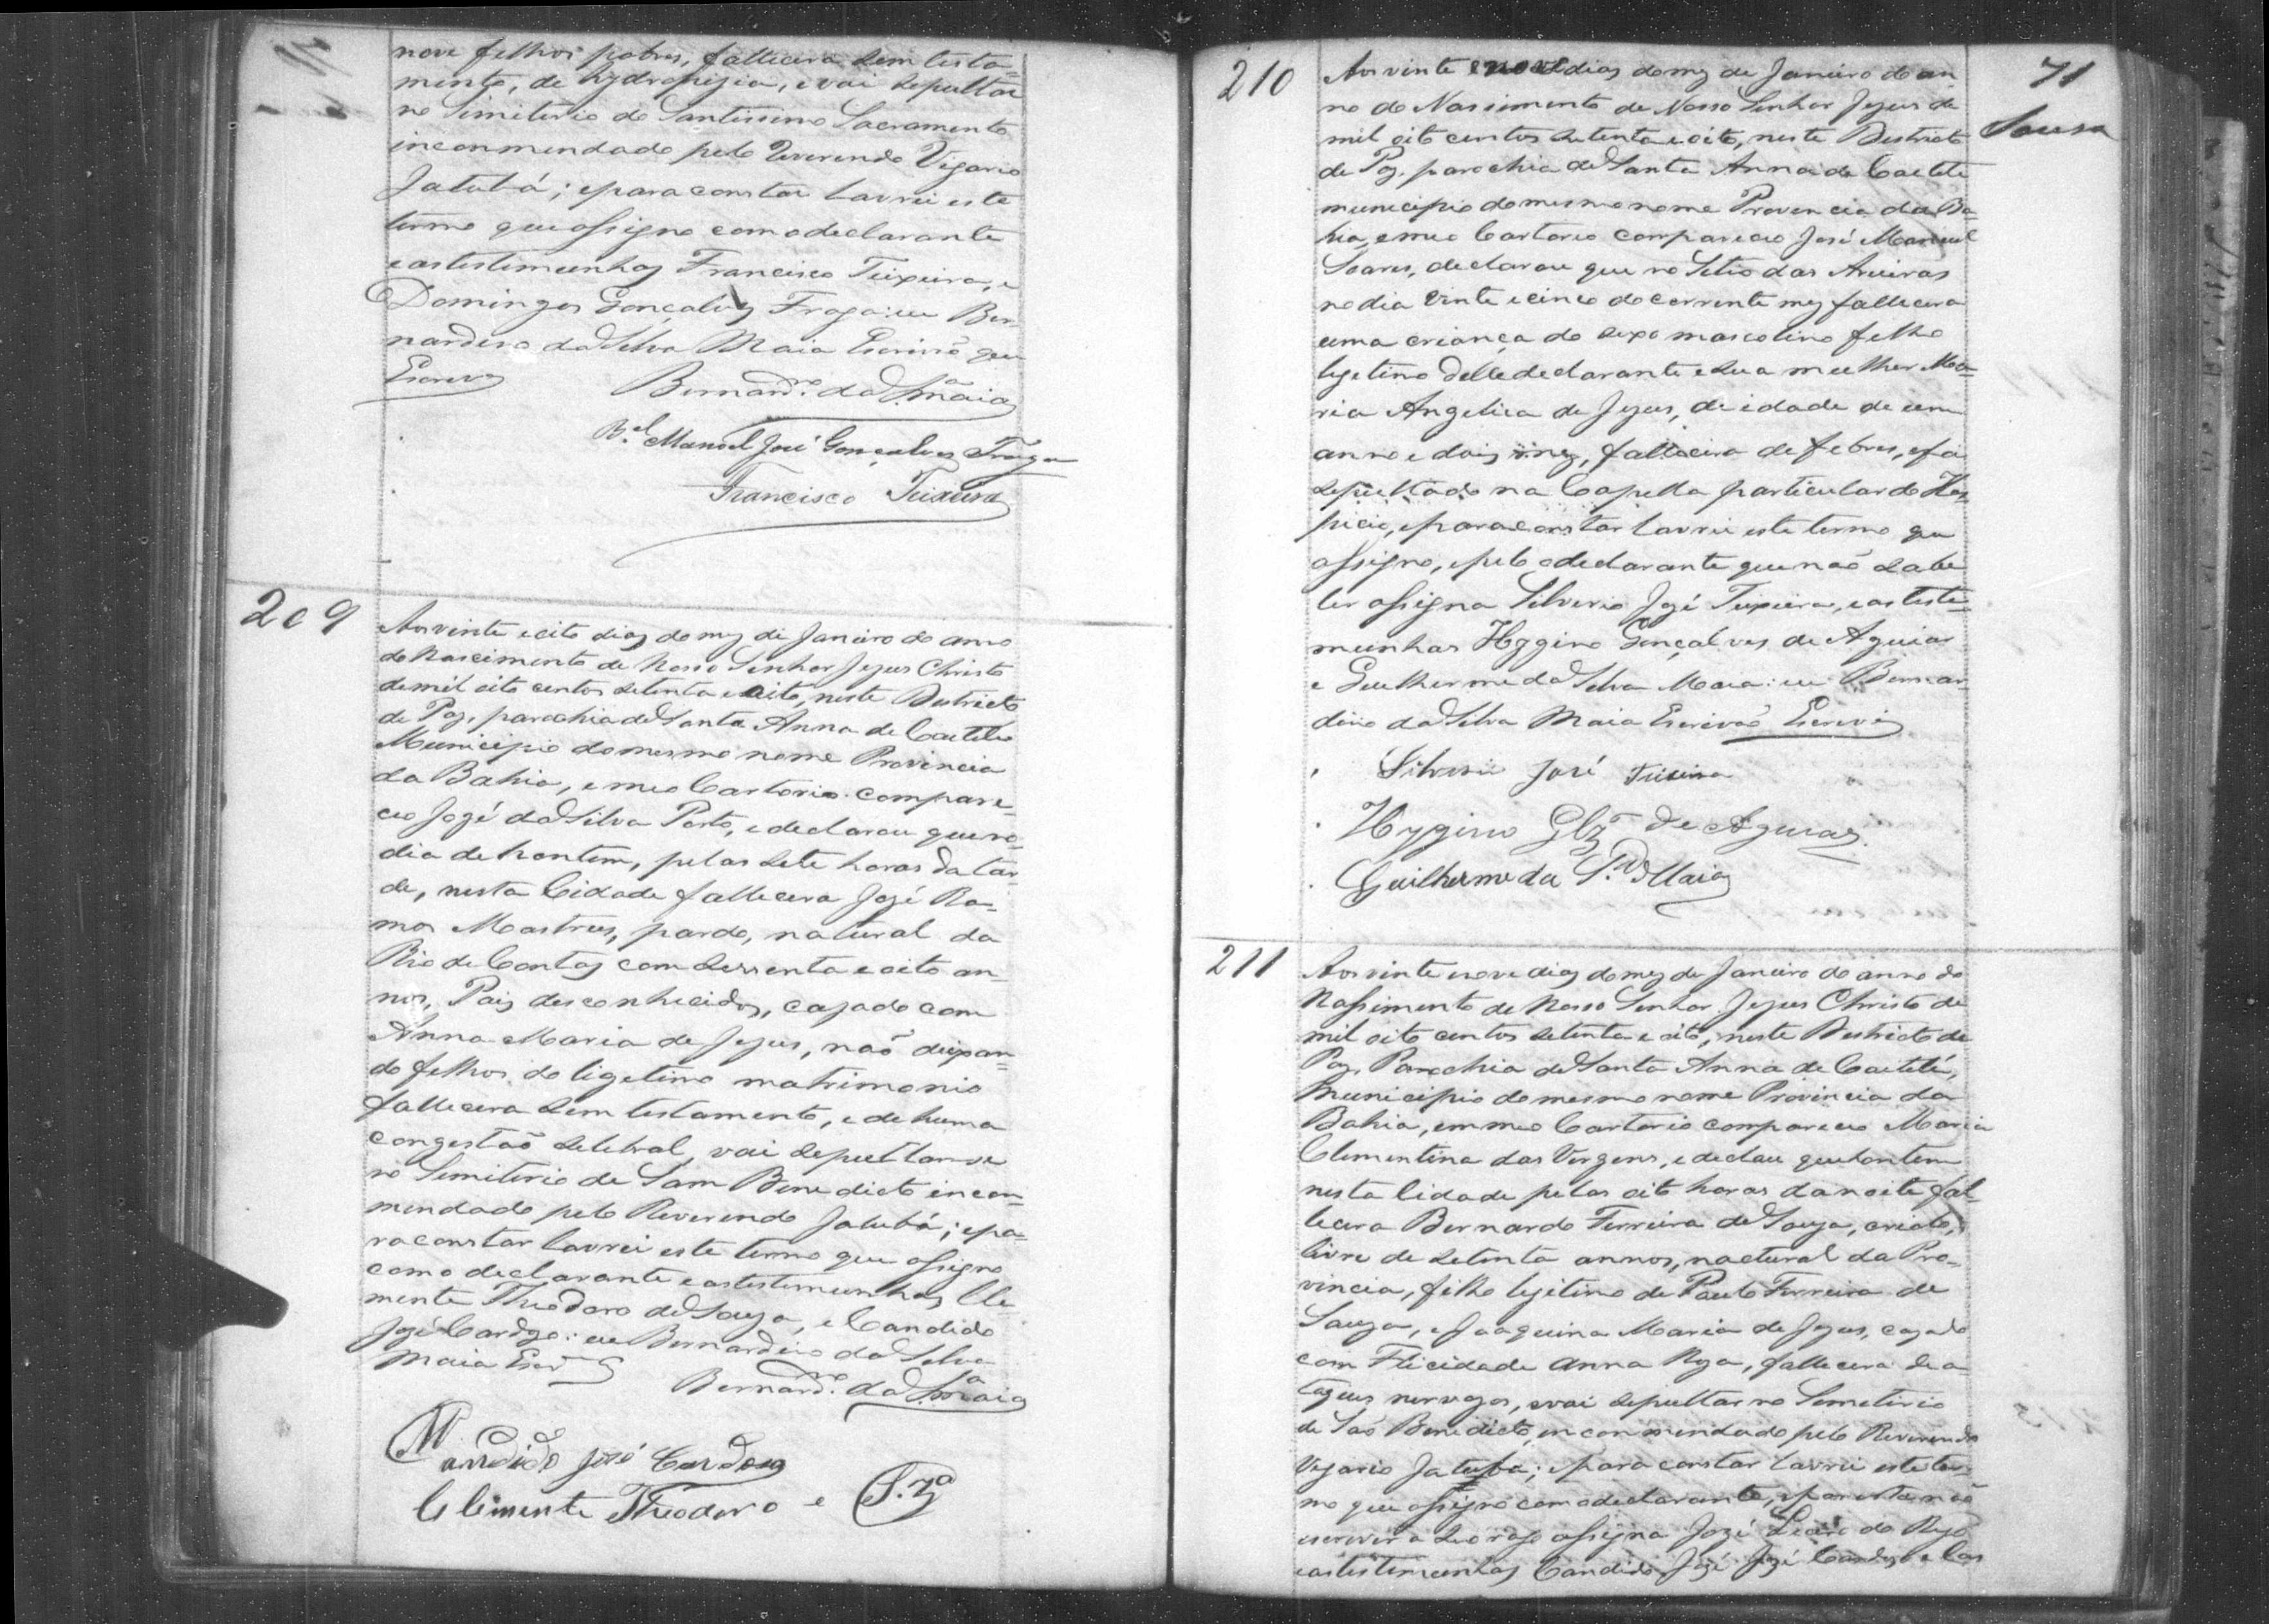 nove filhos pobres, fallecera sem testa-
mento, de hydropizia, e vai sepultar
no Simiterio do Santissimo Sacramento
inconmendado pelo Reverendo Vigario
Jatubá; e para constar lavrei este
termo que assigno com o declarante
e as testimunhas Francisco Teixeira, e
Domingos Gonçalves Fraga: eu Ber-
nardino da Silva Maia Escrivão que
Escrevy
Bernard.no da S.a Maia
B.el Manoel José Gonçalves Fraga
Francisco Teixeira
209
Aos vinte e oito dias do mez de Janeiro do anno
do Nascimento de Nosso Senhor Jezus Christo
de mil oito centos setenta e oito, neste Destricto
de Paz, parochia de Santa Anna de Caetete
Municipio do mesmo nome Provincia
da Bahia, e meo Cartorio compare-
ceo Jozé da Silva Porto, e declarou que no
dia de hontem, pelas sete horas da tar-
de, nesta Cidade fallecera Jozé Ra-
mos Mastres, pardo, natural da
Rio de Contas com sessenta e oito an-
nos, Pais desconhecidos, cazado com
Anna Maria de Jezus, não deixan-
do filhos do ligetimo matrimonio
fallecera sem testamento, e de huma
congestão selebral, vai sepultar-se
no Simiterio de Sam Benedicto incon-
mendado pelo Reverendo Jatubá; e pa-
ra constar lavrei este termo que assigno
com o declarante e as testemunhas Cle-
mente Theodoro de Souza, e Candido
Jozé Cardozo: eu Bernardino da Silva
Maia Escr
Bernard.no da S.a Maia
Candido José Cardoso
Clemente Theodoro e S.za
71
Sousa
210
Aos vinte e nove dias do mez de Janeiro do an
no do Nassimento de Nosso Senhor Jezus de
mil oito centos setenta e oito, neste Destricto
de Paz, parochia de Santa Anna de Caetete
municipio do mesmo nome Provencia da Ba-
hia, e meo Cartorio compareceo José Manuel
Soares, declarou que no Sitio das Arueiras
no dia vinte e cinco do corrente mez fallecera
uma criança do sexo mascolino filho
legetimo delle declarante e sua mulher Ma-
ria Angelica de Jezus, de idade de um
anno e dois mez, fallecera de febres, e foi
sepultado na Capella particular do Hos-
picio, e para constar lavrei este termo que
assigno, e pelo o declarante que não sabe
ler assigna Silverio Jozé Teixeira, e as teste-
munhas Hygino Gonçalves de Aguiar
e Guilherme da Silva Maia: eu Bernar-
dino da Silva Maia Escrivão Escrevi
Silverio José Teixeira
Hygino Glz de Aguiar
Guilherme da S.a Maia
211
Aos vinte e nove dias do mez de Janeiro do anno do
Nassimento de Nosso Senhor Jezus Christo de
mil oito centos setenta e oito, neste Destricto de
Paz, Parochia de Santa Anna de Caetité,
Municipio do mesmo nome Provincia da
Bahia, em meo Cartorio compareceo Maria
Clementina das Virgens, e declau que hontem
nesta Cidade pelas oito horas da noite fal-
lecera Bernardo Ferreira de Souza, crioulo,
livre de setenta annos, nactural da Pro-
vincia, filho legitimo de Paulo Ferreira de
Souza, e Joaquina Maria de Jezus, cazado
com Filicidade Anna Roza, fallecera de a-
taques nervozos, e vai sepultar no Semeterio
de São Benedicto, inconmendado pelo Reverendo
Vigario Jatuba; e para constar lavrei este ter-
mo que assigno com o declarante, e por esta não
escrever a seo rogo assigna Jozé do Rego
e as testemunhas Candido Jozé Cardozo e Cas